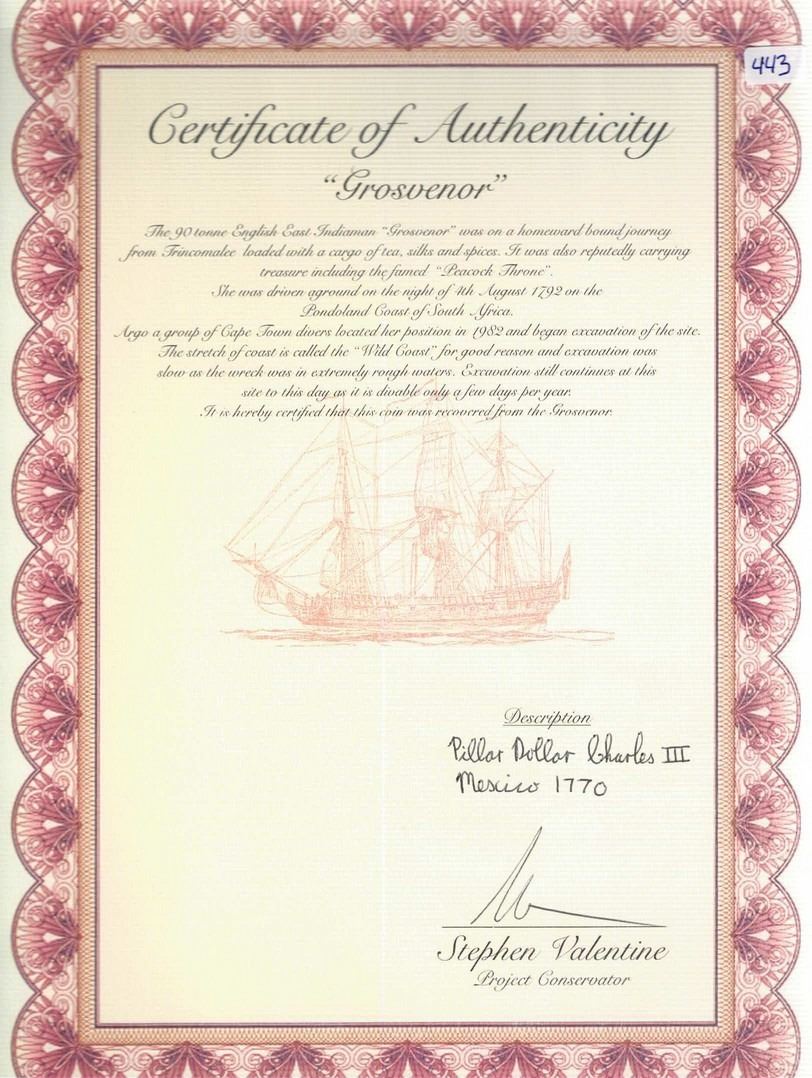 443
Certificate of Authenticity
"Grosvenor"
The 90 tonne English East Indiaman "Grosvenor" was on a homeward bound journey
from Trincomalee loaded with a cargo of tea, silks and spices. It was also reputedly carrying
treasure including the famed "Peacock Throne".
She was driven aground on the night of 4th August 1792 on the
Pondoland Coast of South Africa.
Argo a group of Cape Town divers located her position in 1982 and began excavation of the site.
The stretch of coast is called the "Wild Coast" for good reason and excavation was
slow as the wreck was in extremely rough waters. Excavation still continues at this
site to this day as it is divable only a few days per year.
It is hereby certified that this coin was recovered from the Grosvenor.
Description
Pillar Dollar Charles III
Mexico 1770
Stephen Valentine
Project Conservator